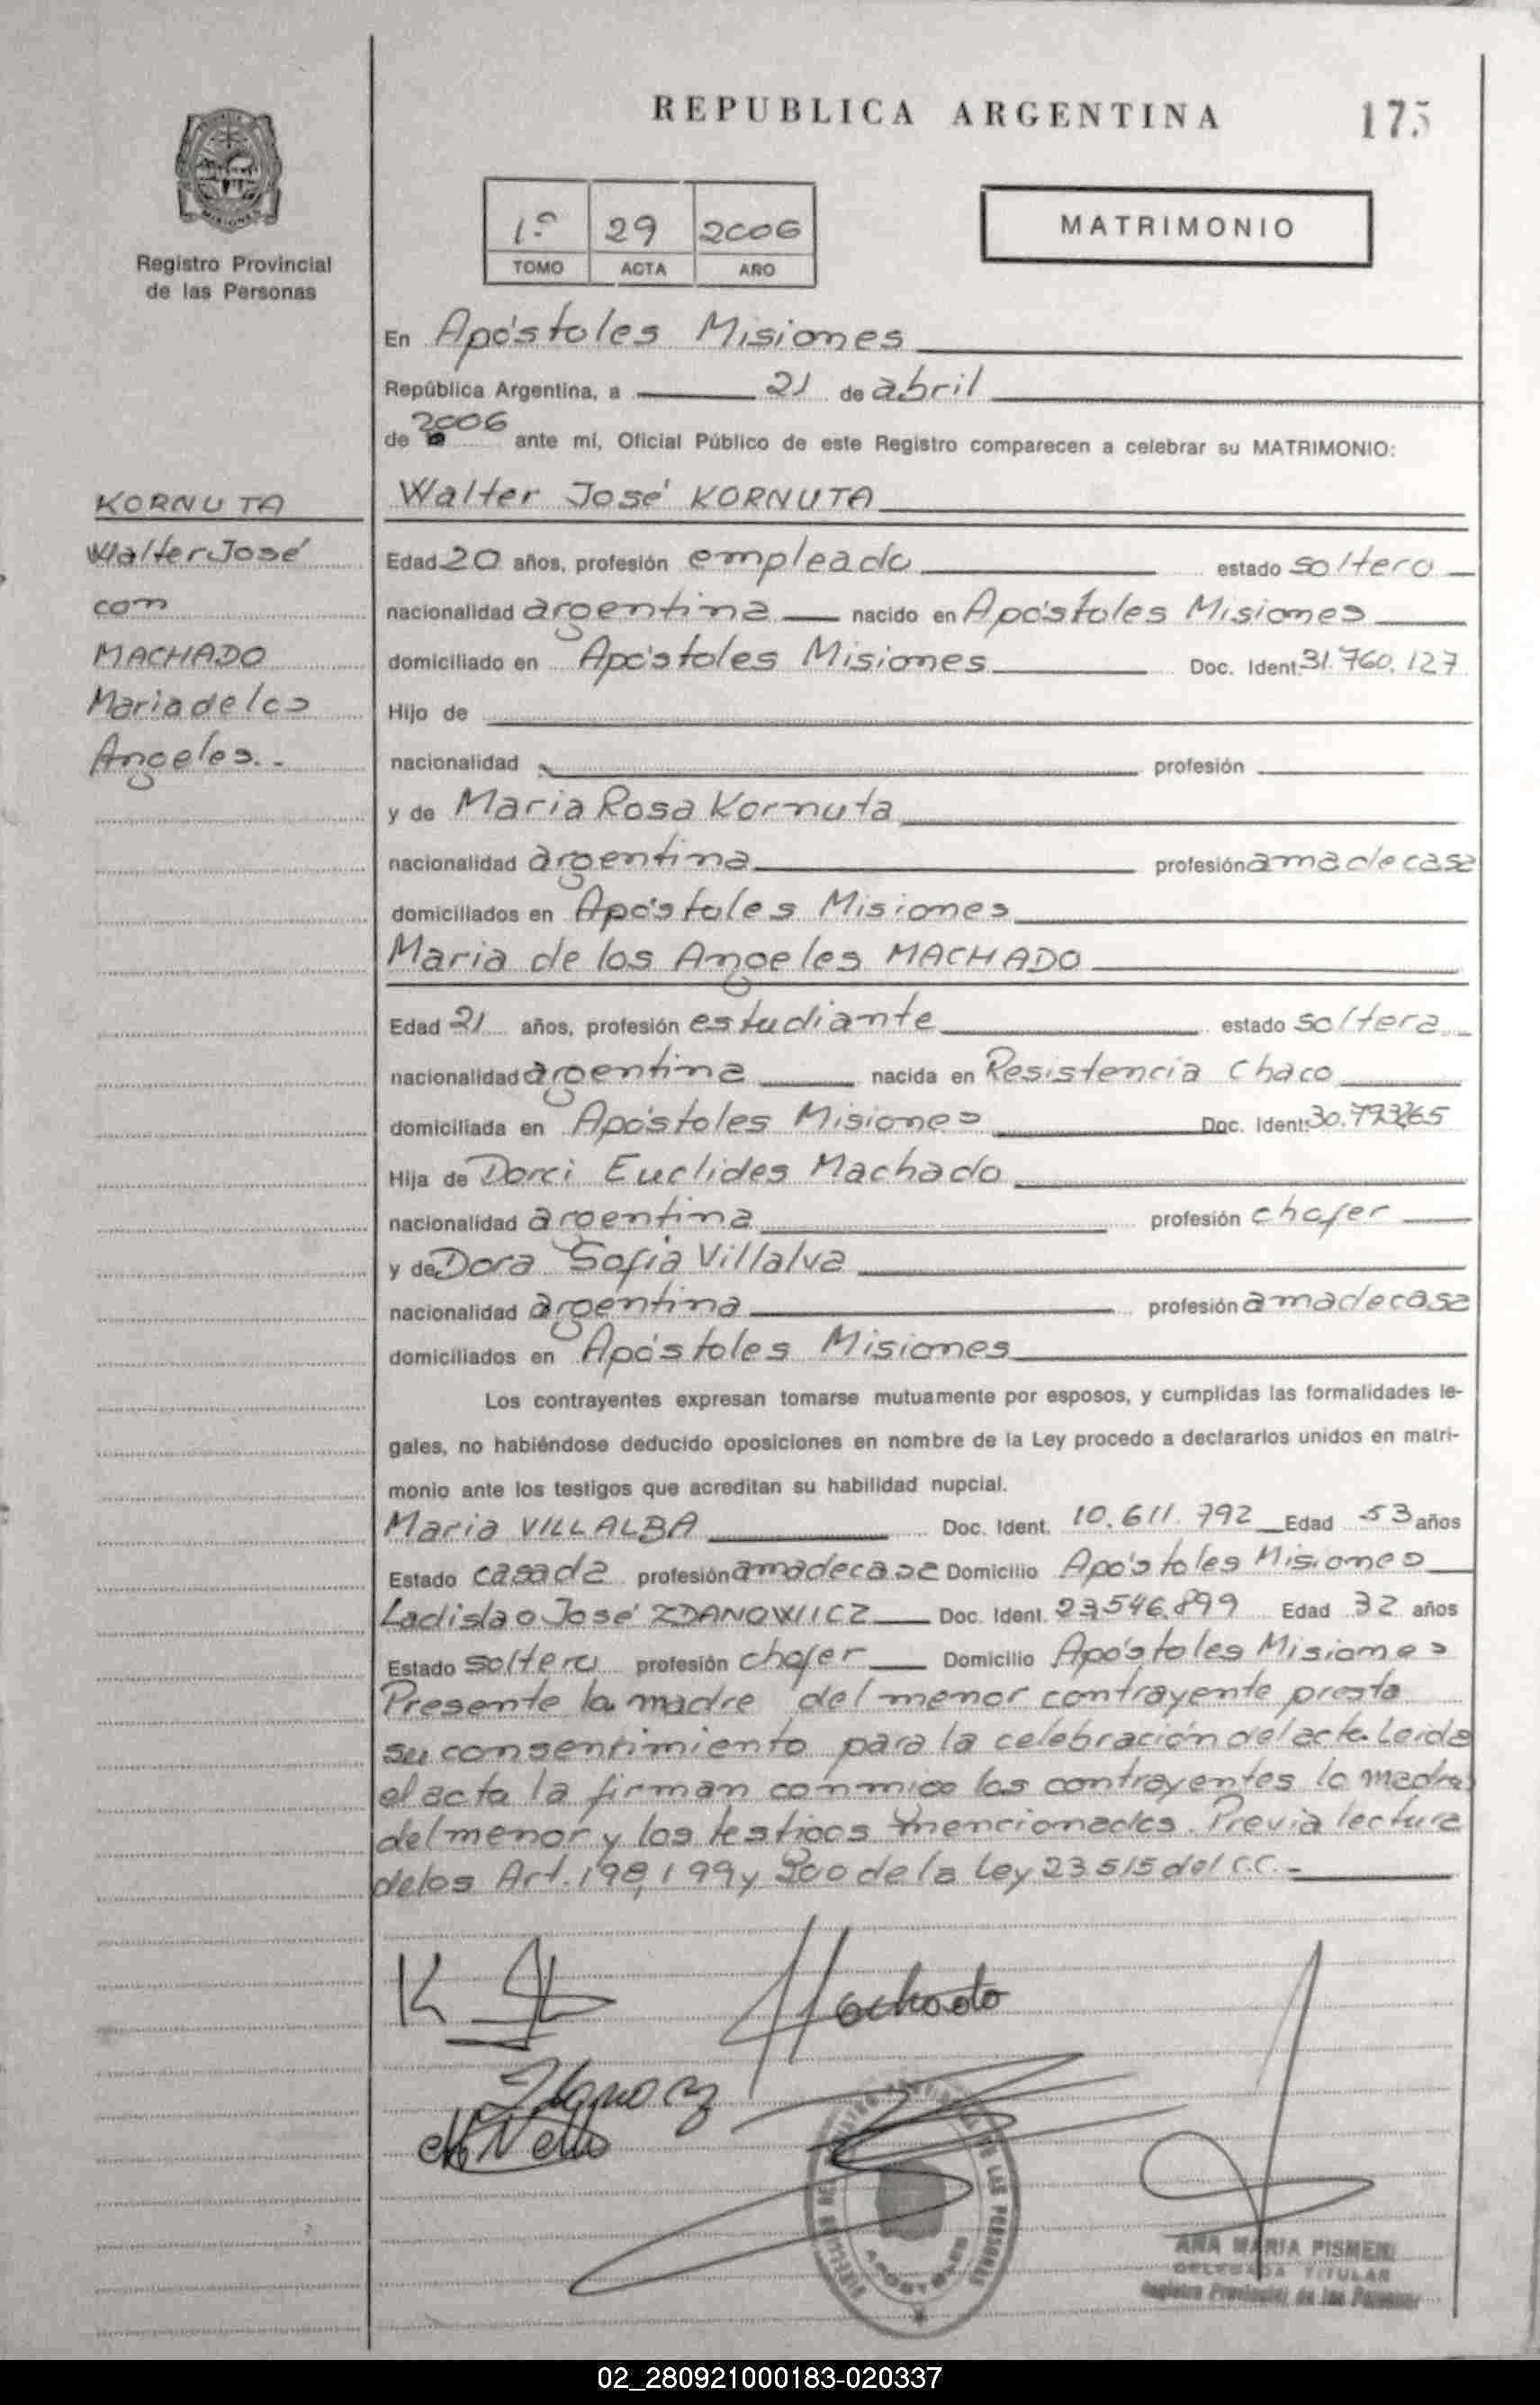 REPUBLICA ARGENTINA
175
MISIONES
Registro Provincial
de las Personas
1º 29 2006
TOMO ACTA AÑO
MATRIMONIO
En Apóstoles Misiones
República Argentina, a 21 de abril
de 2006 ante mí, Oficial Público de este Registro comparecen a celebrar su MATRIMONIO:
KORNUTA
Walter José
con
MACHADO
Maria de los
Angeles.-
Walter José KORNUTA
Edad 20 años, profesión empleado estado soltero
nacionalidad argentina nacido en Apóstoles Misiones
domiciliado en Apóstoles Misiones Doc. Ident. 31.760.127
Hijo de
nacionalidad profesión
y de Maria Rosa Kornuta
nacionalidad argentina profesión ama de casa
domiciliados en Apóstoles Misiones
Maria de los Angeles MACHADO
Edad 21 años, profesión estudiante estado soltera
nacionalidad argentina nacida en Resistencia Chaco
domiciliada en Apóstoles Misiones Doc. Ident:
Hija de Dorci Euclides Machado
nacionalidad argentina profesión chofer
y de Dora Sofia Villalva
nacionalidad argentina profesión ama de casa
domiciliados en Apóstoles Misiones
Los contrayentes expresan tomarse mutuamente por esposos, y cumplidas las formalidades le-
gales, no habiéndose deducido oposiciones en nombre de la Ley procedo a declararlos unidos en matri-
monio ante los testigos que acreditan su habilidad nupcial.
Maria VILLALBA Doc. Ident. 10.611.792 Edad 53 años
Estado casada profesión ama de casa Domicilio Apóstoles Misiones
Ladislao José ZDANOWICZ Doc. Ident. 23.546.899 Edad 32 años
Estado soltero profesión chofer Domicilio Apóstoles Misiones
Presente la madre del menor contrayente presta
su consentimiento para la celebración del acto. Leida
el acta la firman conmigo los contrayentes la madre
del menor y los testigos mencionados. Previa lectura
de los Art. 198, 199 y 200 de la Ley 23.515 del C.C.-
Machado
DE LAS PERSONAS
APOSTOLES
ANA MARIA PISMEN
DELEGADA TITULAR
Registro Provincial de las Personas
02_280921000183-020337